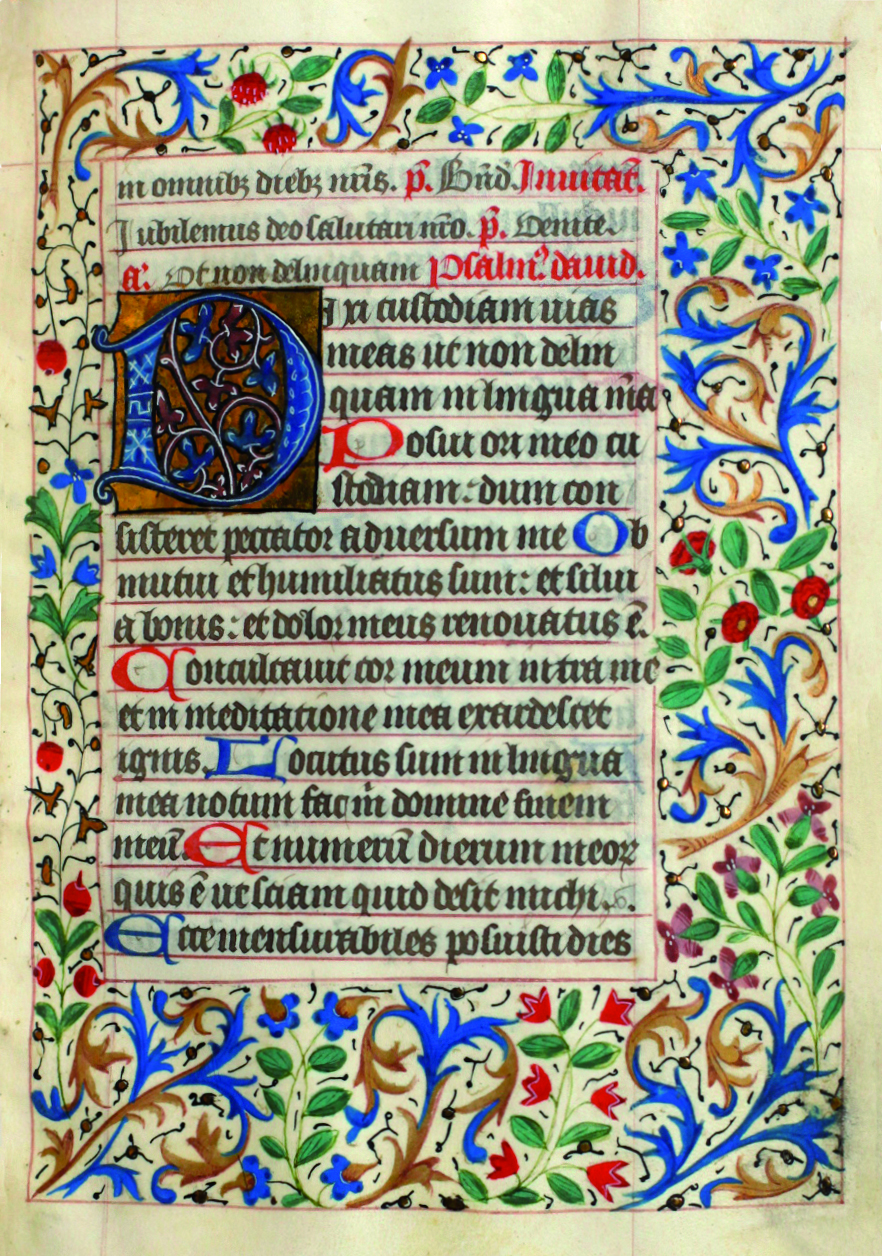 in omnibȝ diebȝ nr̄is. p̄. Bn̄d. Inuitat̄.
Iubilemus deo salutari nr̄o. p̄. Venite.
a͛. Vt non delinquam Psalmꝰ. dauid.
Dixi custodiam uias
meas ut non delin
quam in lingua m̄a
Posui ori meo cu
stodiam: dum con
sisteret peccator aduersum me Ob
mutui et humiliatus sum: et silui
a bonis: et dolor meus renouatus ē.
Concaluit cor meum intra me
et in meditatione mea exardescet
ignis. Locutus sum in lingua
mea notum fac m̄ domine finem
meū. Et numerū dierum meoꝝ
quis ē ut sciam quid desit michi.
Ecce mensurabiles posuisti dies